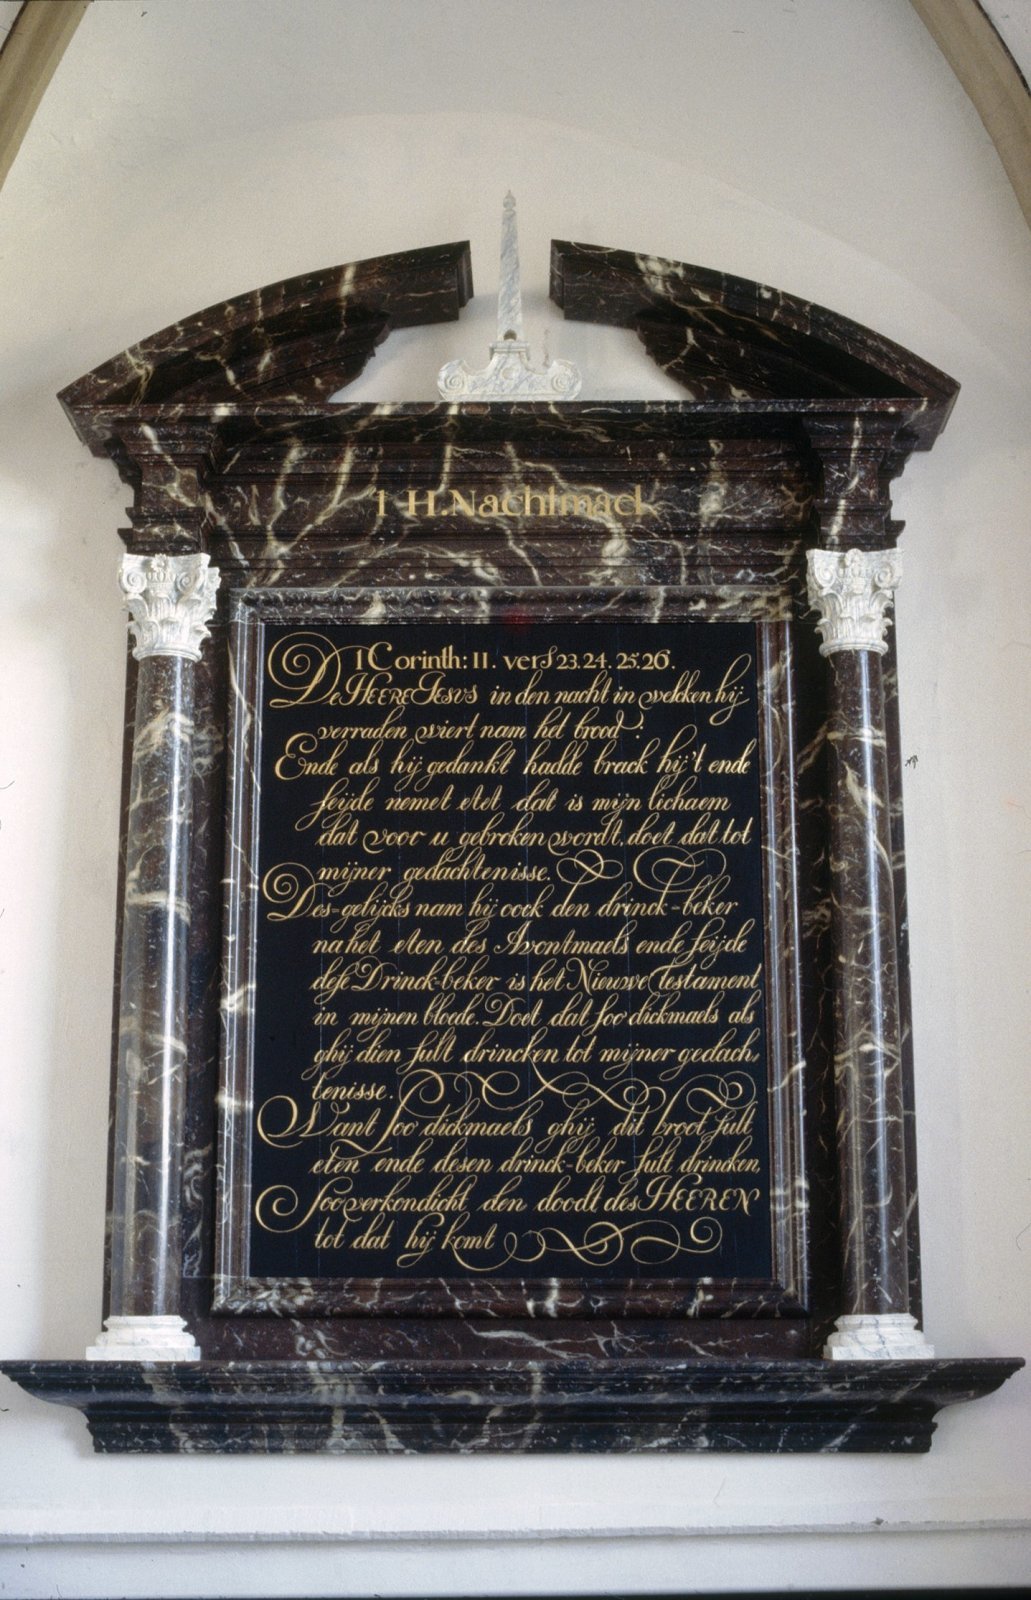 1 H.Nachtmael
1 Corinth: 11. vers 23.24.25.26.
De HEERE Jesus in den nacht in welcken hij
verraden wiert nam het brood:
Ende als hij gedankt hadde brack hij't ende
seijde nemet etet dat is mijn lichaem
dat voor u gebroken wordt, doet dat tot
mijner gedachtenisse.
Des-gelijcks nam hij oock den drinck-beker
na het eten des Avontmaels ende seijde
dese Drinck-beker is het Nieuwe Testament
in mijnen bloede. Doet dat soo dickmaels als
ghij dien sult drincken tot mijner gedach,
tenisse.
Want soo dickmaels ghij dit broot sult
eten ende desen drinck-beker sult drincken,
soo verkondicht den doodt des HEEREN
tot dat hij komt